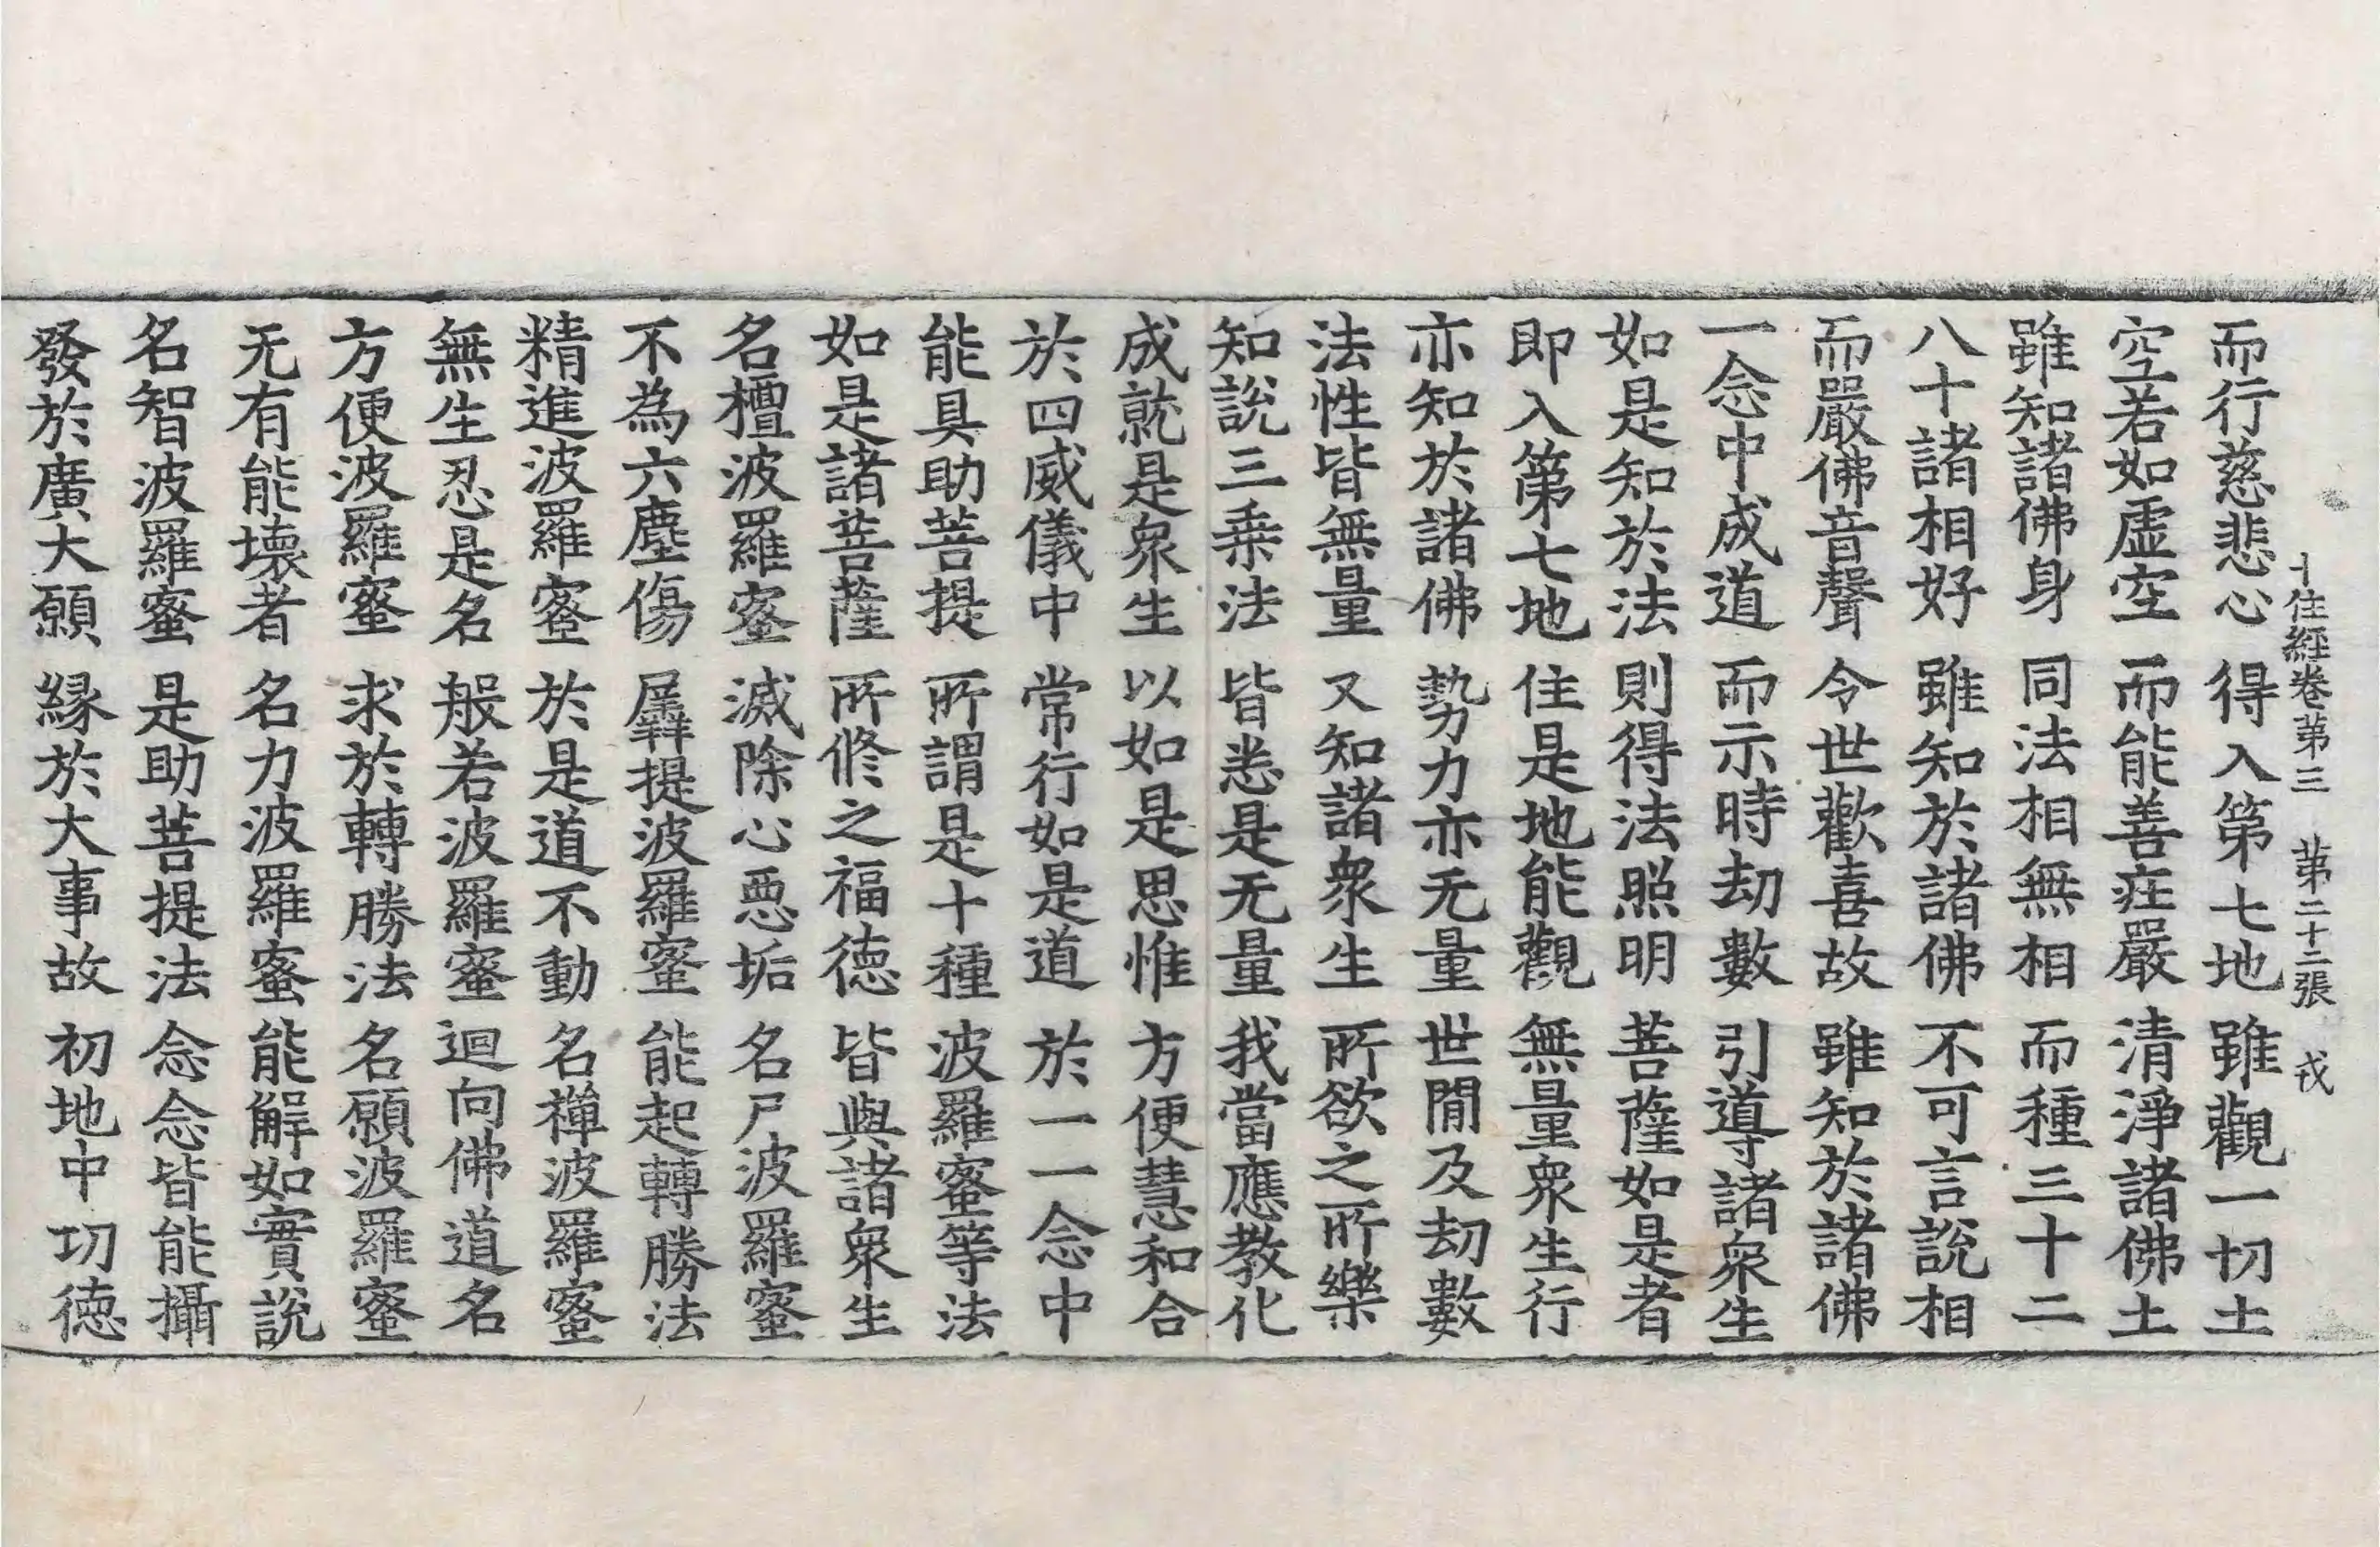 十住經卷第三　第二十二張　戎
而行慈悲心　得入第七地　雖觀一切土
空若如虛空　而能善莊嚴　清淨諸佛土
雖知諸佛身　同法相無相　而種三十二
八十諸相好　雖知於諸佛　不可言說相
而嚴佛音聲　令世歡喜故　雖知於諸佛
一念中成道　而示時劫數　引導諸衆生
如是知於法　則得法照明　菩薩如是者
即入第七地　住是地能觀　無量衆生行
亦知於諸佛　勢力亦无量　世閒及劫數
法性皆無量　又知諸衆生　所欲之所樂
知說三乗法　皆悉是无量　我當應教化
成就是衆生　以如是思惟　方便慧和合
於四威儀中　常行如是道　於一一念中
能具助菩提　所謂是十種　波羅蜜等法
如是諸菩薩　所修之福徳　皆與諸衆生
名檀波羅蜜　滅除心惡垢　名尸波羅蜜
不為六塵傷　羼提波羅蜜　能起轉勝法
精進波羅蜜　於是道不動　名禪波羅蜜
無生忍是名　般若波羅蜜　迴向佛道名
方便波羅蜜　求於轉勝法　名願波羅蜜
无有能壞者　名力波羅蜜　能解如實說
名智波羅蜜　是助菩提法　念念皆能攝
發於廣大願　緣於大事故　初地中功徳